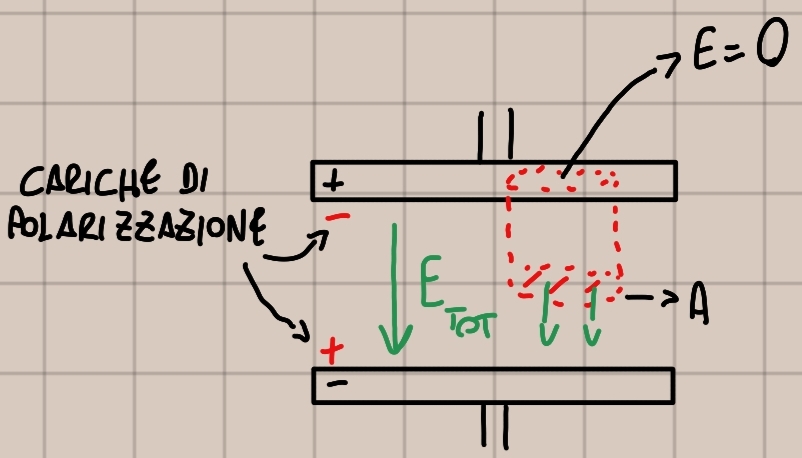 E = 0
CARICHE DI
POLARIZZAZIONE
+
-
E TOT
A
+
-